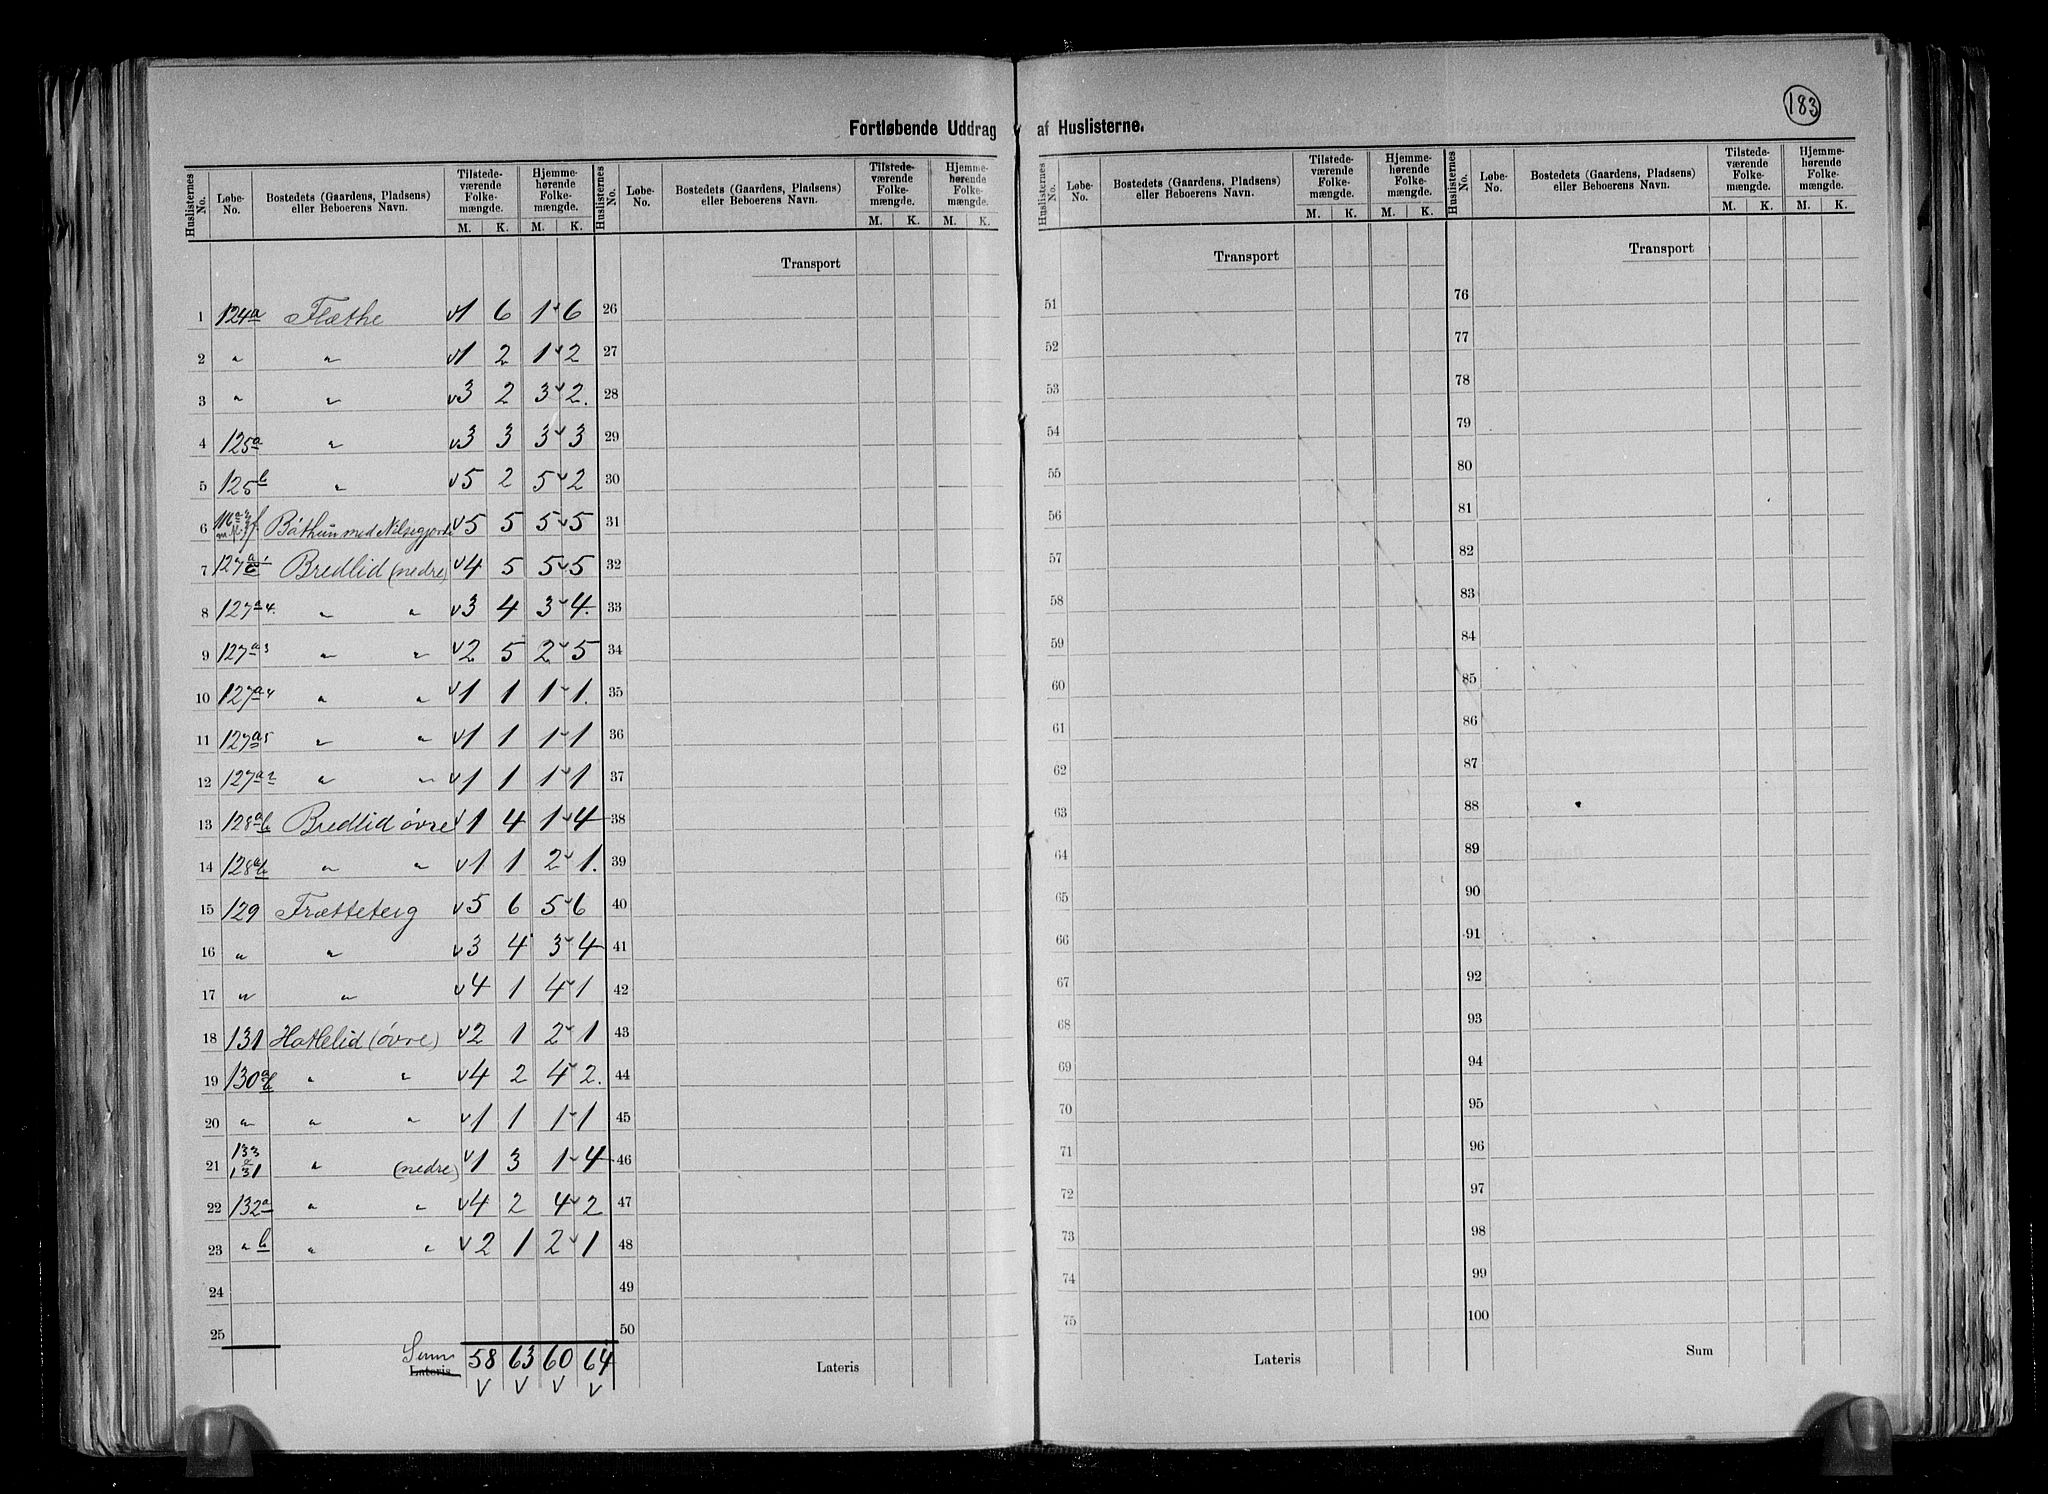 183
Fortløbende Uddrag af Huslisterne.
Huslisternes No. Løbe-No. Bostedets (Gaardens, Pladsens) eller Beboerens Navn. Tilstede-værende Folke-mængde. M. K. Hjemme-hørende Folke-mængde. M. K.
1 124a Flæthe v1 6 1 v 6
2 " " v1 2 1 v 2
3 " " v3 2 3 v 2.
4 125a " v3 3 3 v 3
5 125b " v5 2 5 v 2
6 Båthun med Nilsegjerde v5 5 5 v 5
7 127 Bredlid (nedre) v4 5 5 v 5
8 127a4. " " v3 4 3 v 4.
9 127a3 " " v2 5 2 v 5
10 127a4 " " v1 1 1 v 1.
11 127a5 " " v1 1 1 v 1
12 127a2 " " v1 1 1 v 1
13 128ab Bredlid övre v1 4 1 v 4
14 128ab " " v1 1 2 v 1.
15 129 Frætteteig v5 6 5 v 6
16 " " v3 4 3 v 4
17 " " v4 1 4 v 1
18 131 Hatlelid (övre) v2 1 2 v 1
19 130ab " " v4 2 4 v 2.
20 " " " v1 1 1 v 1
21 133 a 131 " (nedre) v1 3 1 v 4
22 132a " " v4 2 4 v 2
23 " b " " v2 1 2 v 1
24
25
Sum Lateris 58 63 60 64
v v v v
Huslisternes No. Løbe-No. Bostedets (Gaardens, Pladsens) eller Beboerens Navn. Tilstede-værende Folke-mængde. M. K. Hjemme-hørende Folke-mængde. M. K.
Transport
26
27
28
29
30
31
32
33
34
35
36
37
38
39
40
41
42
43
44
45
46
47
48
49
50
Lateris
Huslisternes No. Løbe-No. Bostedets (Gaardens, Pladsens) eller Beboerens Navn. Tilstede-værende Folke-mængde. M. K. Hjemme-hørende Folke-mængde. M. K.
Transport
51
52
53
54
55
56
57
58
59
60
61
62
63
64
65
66
67
68
69
70
71
72
73
74
75
Lateris
Huslisternes No. Løbe-No. Bostedets (Gaardens, Pladsens) eller Beboerens Navn. Tilstede-værende Folke-mængde. M. K. Hjemme-hørende Folke-mængde. M. K.
Transport
76
77
78
79
80
81
82
83
84
85
86
87
88
89
90
91
92
93
94
95
96
97
98
99
100
Sum